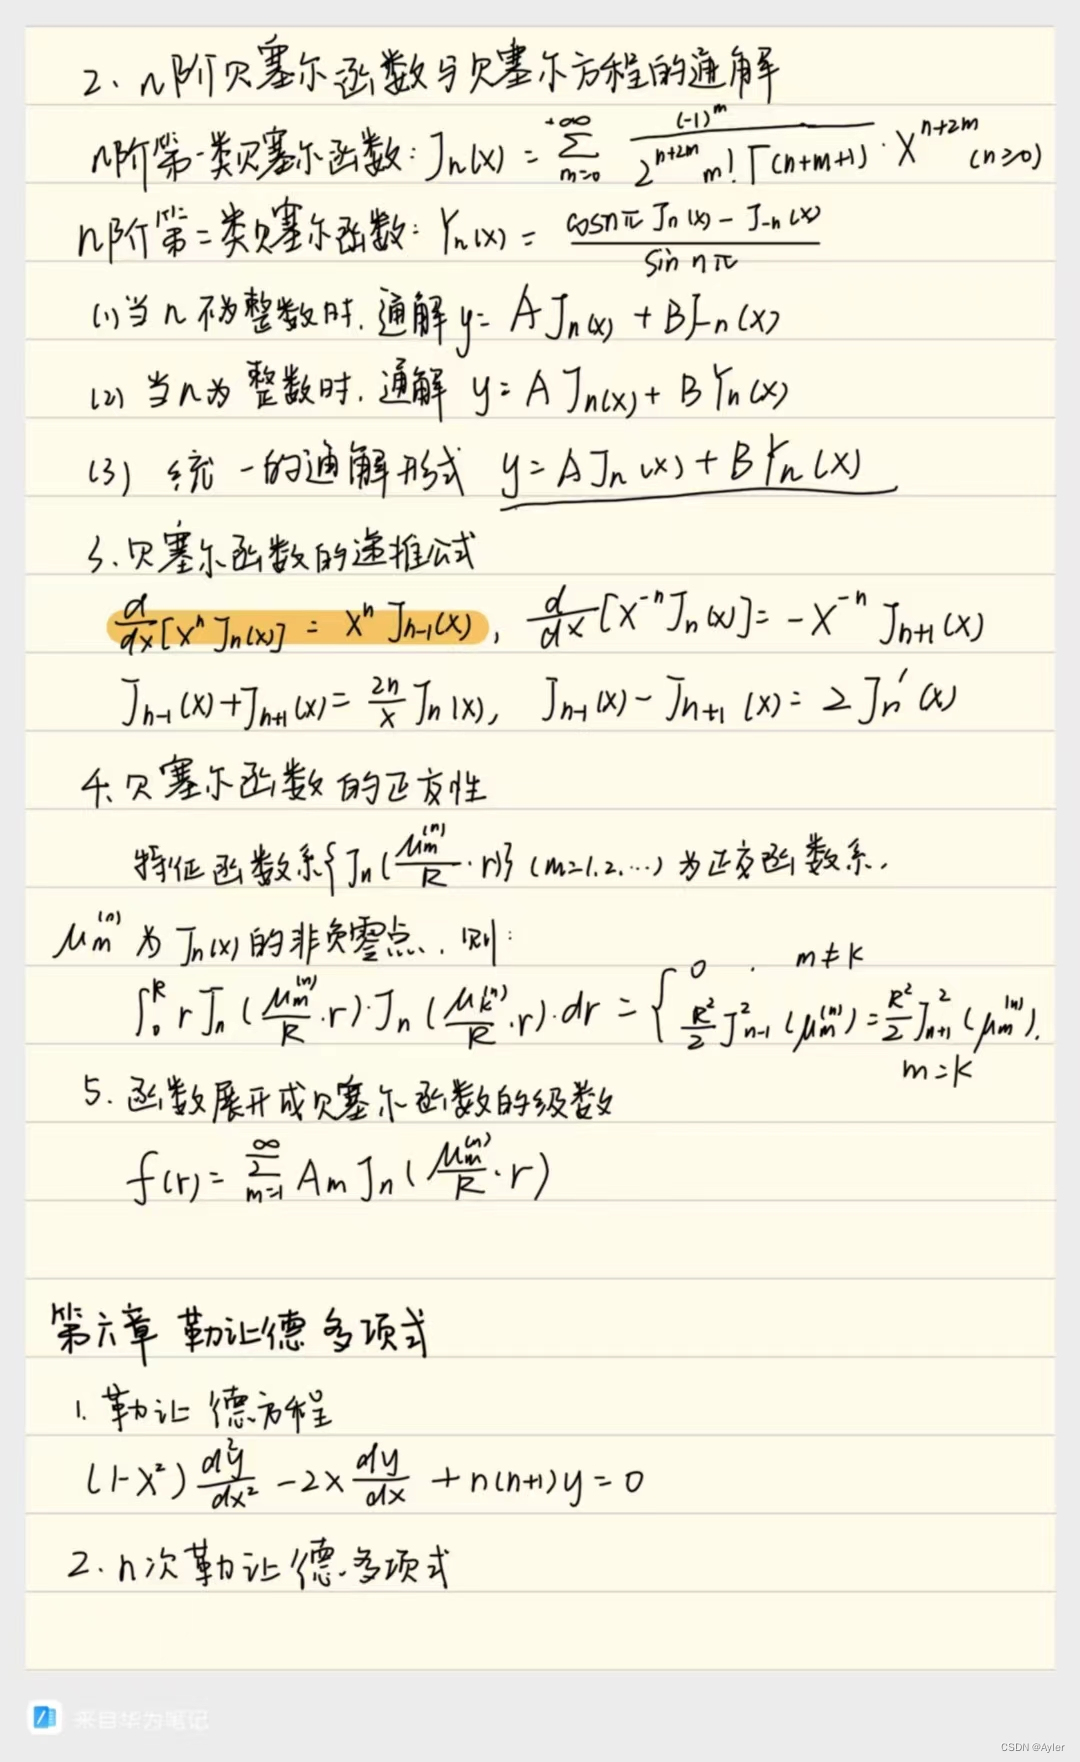 2、n阶贝塞尔函数与贝塞尔方程的通解
n阶第一类贝塞尔函数: J_n(x) = \sum_{m=0}^{+∞} \frac{(-1)^m}{2^{n+2m} m! Γ(n+m+1)} · x^{n+2m} (n≥0)
n阶第二类贝塞尔函数: Y_n(x) = \frac{cosnπ J_n(x) - J_{-n}(x)}{sin nπ}
(1) 当n不为整数时, 通解 y= A J_n(x) + B J_{-n}(x)
(2) 当n为整数时, 通解 y= A J_n(x) + B Y_n(x)
(3) 统一的通解形式 y = A J_n(x) + B Y_n(x)
3. 贝塞尔函数的递推公式
\frac{d}{dx}[x^n J_n(x)] = x^n J_{n-1}(x), \frac{d}{dx}[x^{-n} J_n(x)] = -x^{-n} J_{n+1}(x)
J_{n-1}(x) + J_{n+1}(x) = \frac{2n}{x} J_n(x), J_{n-1}(x) - J_{n+1}(x) = 2 J_n'(x)
4、贝塞尔函数的正交性
特征函数系{J_n(\frac{μ_m^{(n)}}{R}·r)} (m=1.2.…) 为正交函数系.
μ_m^{(n)} 为 J_n(x) 的非负零点, 则:
\int_0^R r J_n(\frac{μ_m^{(n)}}{R}·r)·J_n(\frac{μ_k^{(n)}}{R}·r)·dr = { 0 , m≠k
\frac{R^2}{2} J_{n-1}^2(μ_m^{(n)}) = \frac{R^2}{2} J_{n+1}^2(μ_m^{(n)}),
m=k
5. 函数展开成贝塞尔函数的级数
f(r) = \sum_{m=1}^{∞} A_m J_n(\frac{μ_m^{(n)}}{R}·r)
第六章 勒让德多项式
1. 勒让德方程
(1-x^2)\frac{d^2y}{dx^2} - 2x\frac{dy}{dx} + n(n+1)y = 0
2. n次勒让德多项式
来自华为笔记
CSDN @Ayler